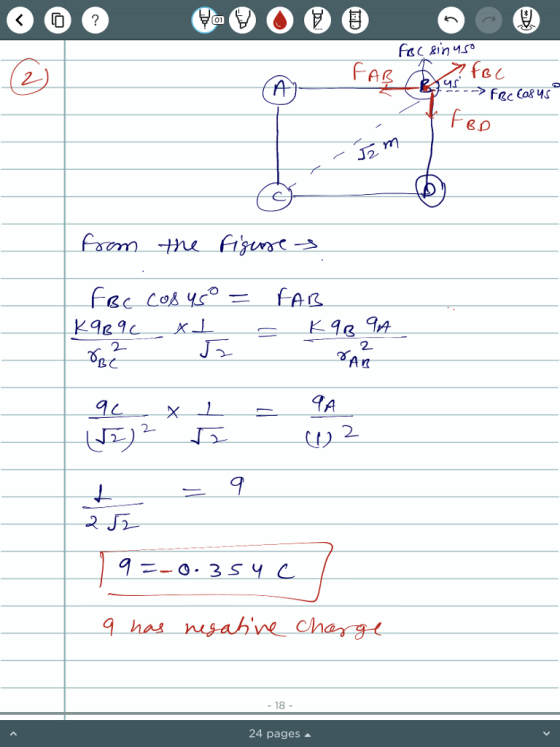 ?
01
2
F_BC sin45°
F_AB
F_BC
A
B
45°
F_BC cos45°
F_BD
√2 m
C
D
from the figure →
F_BC cos 45° = F_AB
K q_B q_C / r_BC^2 × 1/√2 = K q_B q_A / r_AB^2
q_C / (√2)^2 × 1/√2 = q_A / (1)^2
1 / 2√2 = q
q = -0.354 C
q has negative charge
- 18 -
24 pages